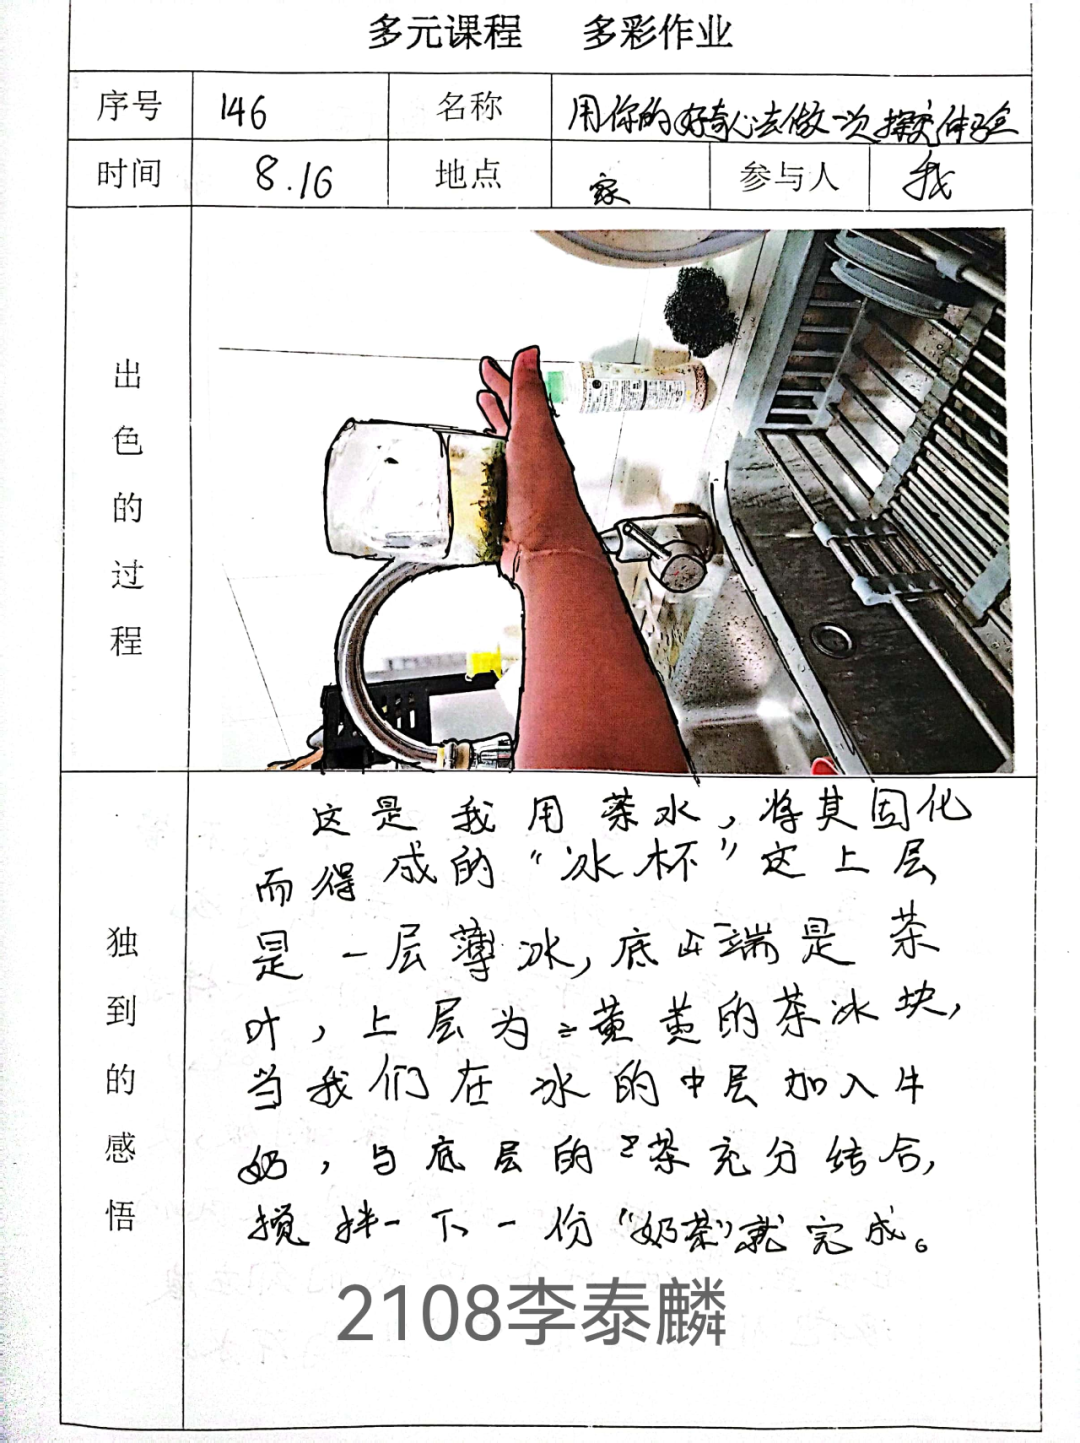 多元课程 多彩作业
序号 146 名称 用你的好奇心去做一次探究体验
时间 8.16 地点 家 参与人 我
出色的过程
独到的感悟
这是我用茶水,将其固化
而得成的“冰杯”这上层
是一层薄冰,底端是茶
叶,上层为黄黄的茶冰块,
当我们在冰的中层加入牛
奶,与底层的茶充分结合,
搅拌一下一份“奶茶”就完成。
2108李泰麟